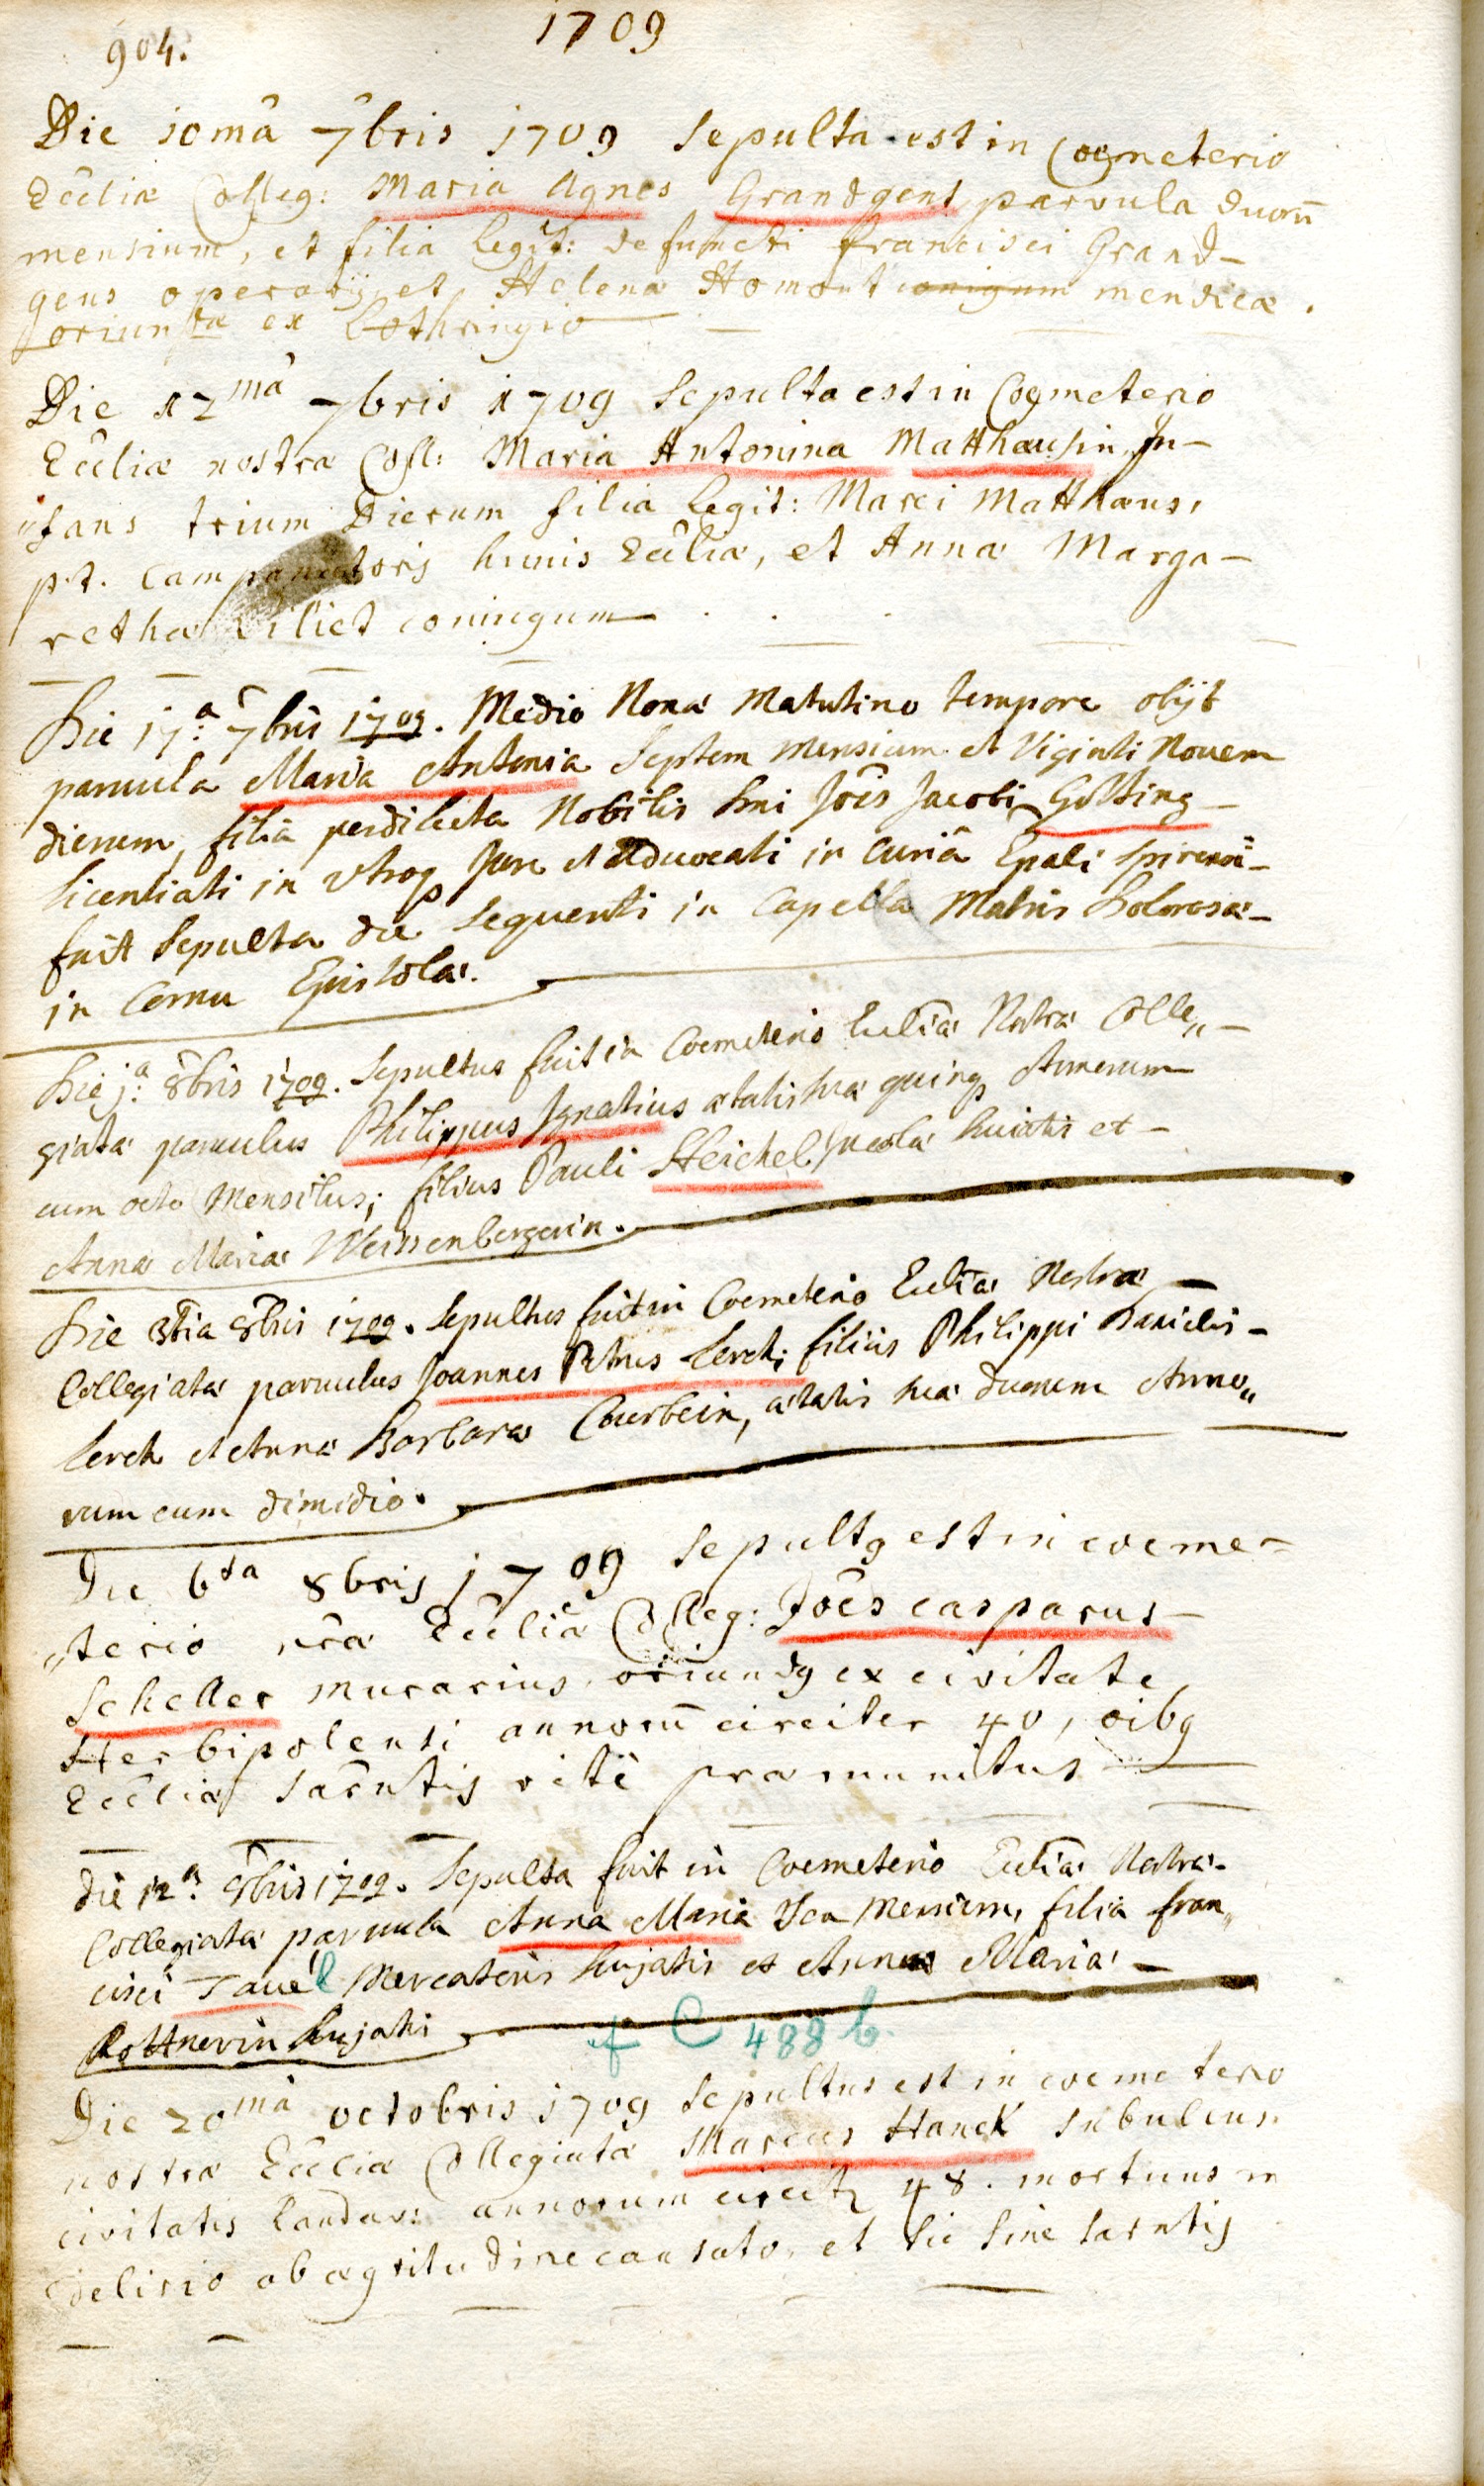 904.
1709
Die 10mâ 7bris 1709 sepulta est in Coemeterio
Eccliæ Colleg: Maria Agnes Grandgens parvula duorū
mensium, et filia legit: defuncti francisci Grand-
gens operarij et Helenæ Homont coniugum mendicæ.
oriundæ ex Lothringiâ
Die 12mâ 7bris 1709 Sepulta est in Coemeterio
Eccliæ nostræ Coll: Maria Antonina Matthæusin In-
"fans trium Dierum filia legit: Marci Matthæus,
p.t. campanatoris huius Eccliæ, et Annæ Marga-
rethæ coniugum
Die 17.a 7bris 1709. Medio Nonæ Matutino tempore obijt
parvula Maria Antonia Septem Mensium et Viginti Novem
dierum, filia perdilecta Nobilis Dni Jois Jacobi Gotting-
licentiati in vtroq Jure et Advocati in Curiâ Epali Spirensi-
fuit Sepulta die sequenti in Capella Matris Dolorosæ-
in Cornu Epistolæ.
Die j.a 8bris 1709. Sepultus fuit in Coemeterio Eccliæ Nostræ Colle"-
giatæ parvulus Philippus Ignatius ætatis suæ quinq Annorum
cum octo Mensibus; filius Pauli Steichel Incolæ huiatis et-
Annæ Mariæ Weissenbergerin.
Die 3tia 8bris 1709. Sepultus fuit in Coemeterio Eccliæ Nostræ-
Collegiatæ parvulus Joannes Petrus Lerch; filius Philippi Danielis-
Lerch et Annæ Barbaræ Courbein, ætatis suæ duorum Anno"
rum cum dimidio.
Die 6ta 8bris 1709 Sepultg est in coeme-
"terio nræ Eccliæ Colleg: Joês casparus-
Scheller murarius, oriundg ex civitate
Herbipolensi annorū circiter 40, oibg
Eccliæ Sacntis ritè præmunitus
die 12.a 8bris 1709. Sepulta fuit in Coemeterio Eccliæ Nostræ-
Collegiatæ parvula Anna Maria Mensium, filia fran"
cisci Tavel Mercatoris hujatis et Annæ Mariæ-
Rottnerin hujatis
f C 488 b.
Die 20mâ octobris 1709 Sepultus est in coemeterio
nostræ Eccliæ Collegiatæ Marcus Hanck subulcus
civitatis Landav: annorum circitr 48. mortuus in
delirio ab ægritudine causato, et sic sine sacntis